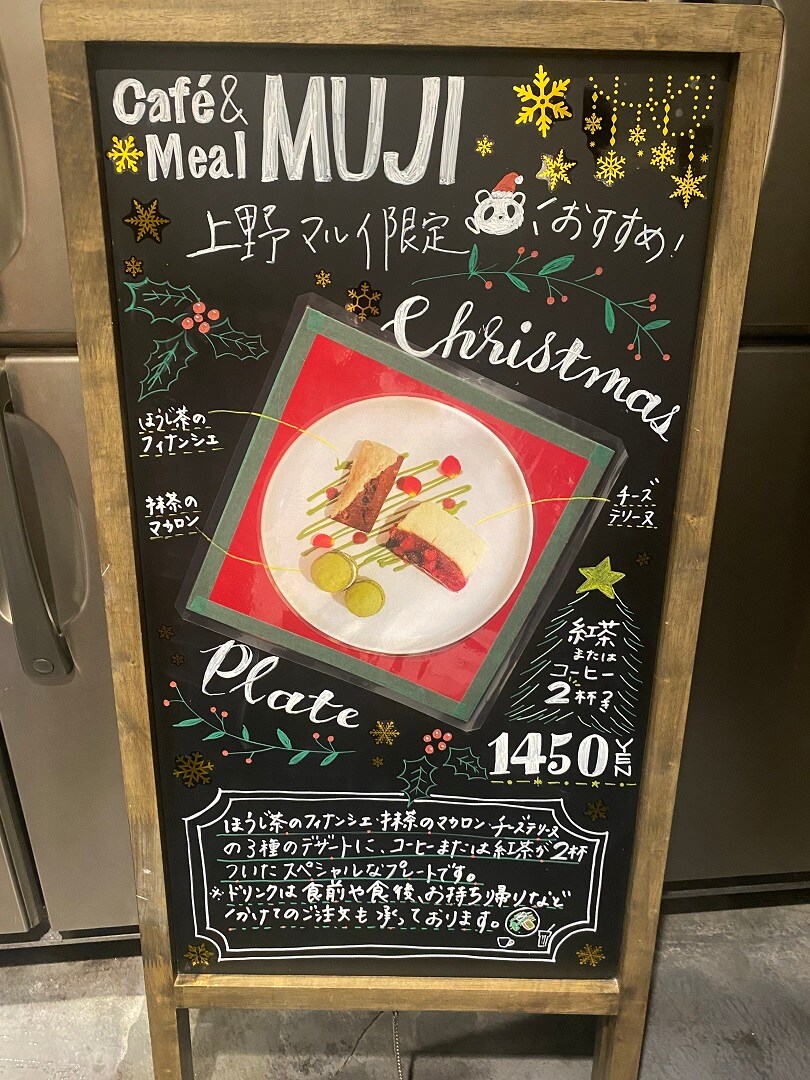 Café &
Meal MUJI
上野マルイ限定
おすすめ!
Christmas
ほうじ茶の
フィナンシェ
抹茶の
マカロン
チーズ
テリーヌ
Plate
紅茶
または
コーヒー
2杯つき
1450YEN
ほうじ茶のフィナンシェ・抹茶のマカロン・チーズテリーヌ
の3種のデザートに、コーヒーまたは紅茶が2杯
ついたスペシャルなプレートです。
※ドリンクは食前や食後、お持ち帰りなど
わけてのご注文も承っております。